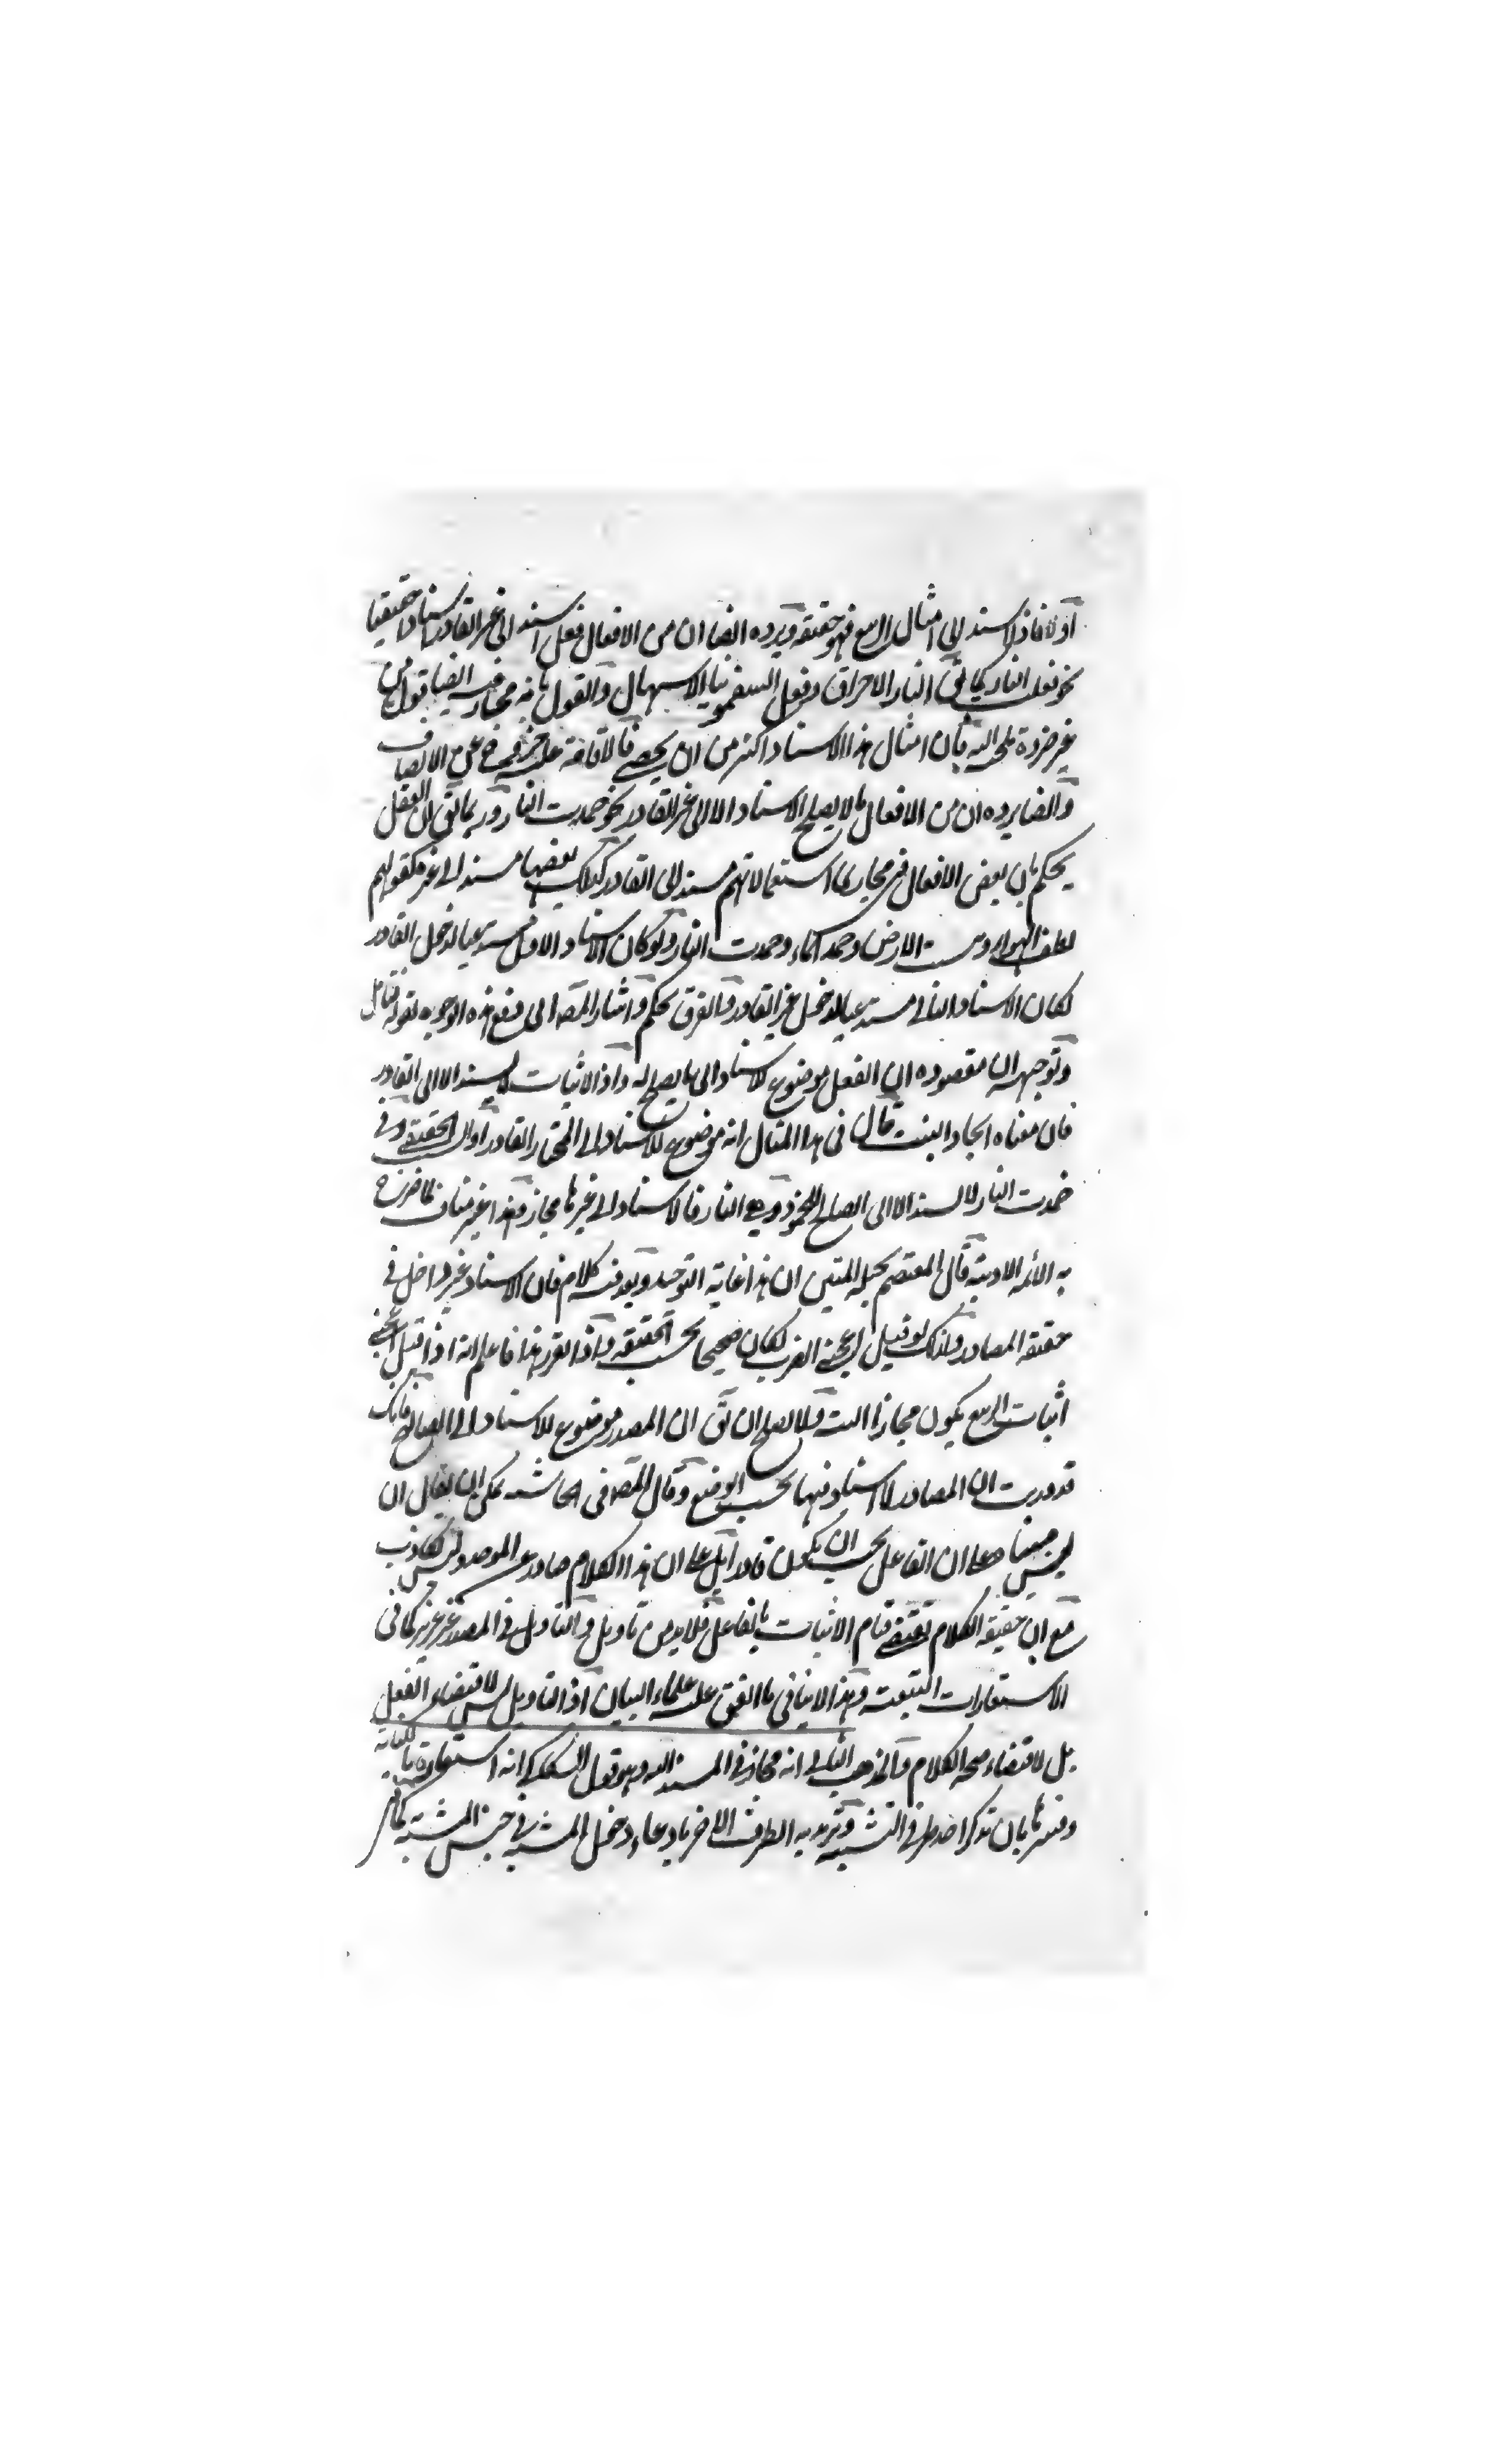 اولا فاذا اسند الى امثال الربيع فهو حقيقة ويرده ايضا ان من الافعال فعل اسند الى غير القادر اسنادا حقيقيا
نحو فعلت النار كما يق النار الاحراق وفعل السقمونيا الاسهال والقول بانه مجاز فيه ايضا قول من
غير ضرورة ملجئة اليه فان امثال هذا الاسناد اكثر من ان يحصى فالاقامة عليه خروج عن الانصاف
وايضا يرده ان من الافعال ما لا يصلح الاسناد الا الى غير القادر نحو خمدت النار وربما يق ان العقل
يحكم بان بعض الافعال في مجارى استعمالاتهم مسند الى القادر كذلك بعضها مسند الى غيره كقولهم
لطف الهواء ويبست الارض وجمد الماء وخمدت النار ولو كان الاسناد الاول مستدعيا لدخول القادر
لكان الاسناد الثانى مستدعيا لدخول غير القادر والفرق تحكم واشار المص الى دفع هذه الوجوه بقوله فتامل
وتوجيهه ان مقصوده ان الفعل موضوع للاسناد الى ما يصلح له واذ الانبات لا يسند الا الى القادر
فان معناه ايجاد النبت قال فى هذا المثال انه موضوع للاسناد الى المختار القادر اوالى الحقيقى وفى
خمدت النار لا يسند الا الى الصالح للخمود وهى النار فالاسناد الى غيرها مجاز وهذا غير مناف لما صرح
به الائمة الادبية قال المعتصم بحبله المتين ان هذا غاية التوجيه وبعد فيه كلام فان الاسناد غير داخل فى
حقيقة المصادر ولذلك لو قيل اعجبنى الضرب لكان صحيحا بحسب الحقيقة واذا تقرر هذا فاعلم انه اذا قيل اعجبنى
انبات الربيع يكون مجازا البتة ولا يصلح ان يق ان المصدر موضوع للاسناد الى الصالح فانك
قد دريت ان المصادر لا اسناد فيها بحسب الوضع وقال المص فى الحاشية يمكن ان يقال ان
ليس مبناه على ان الفاعل يجب ان يكون قادرا بل على ان هذا الكلام صادر عن الموحد وليس بكاذب
مع ان حقيقة الكلام تقتضى قيام الانبات بالفاعل فلا بد من تاويل والتاويل فى المصدر غير عزيز كما فى
الاستعارات التبعية وهذا لا ينافى ما اتفق عليه علماء البيان اذ التاويل ليس لاقتضاء الفعل
بل لاقتضاء صحة الكلام والمذهب الثانى انه مجاز فى المسند اليه وهو قول السكاكى انه استعارة بالكناية
وفسرها بان تذكر احد طرفى التشبيه وتريد به الطرف الاخر بادعاء دخول المشبه فى جنس المشبه به كما فى